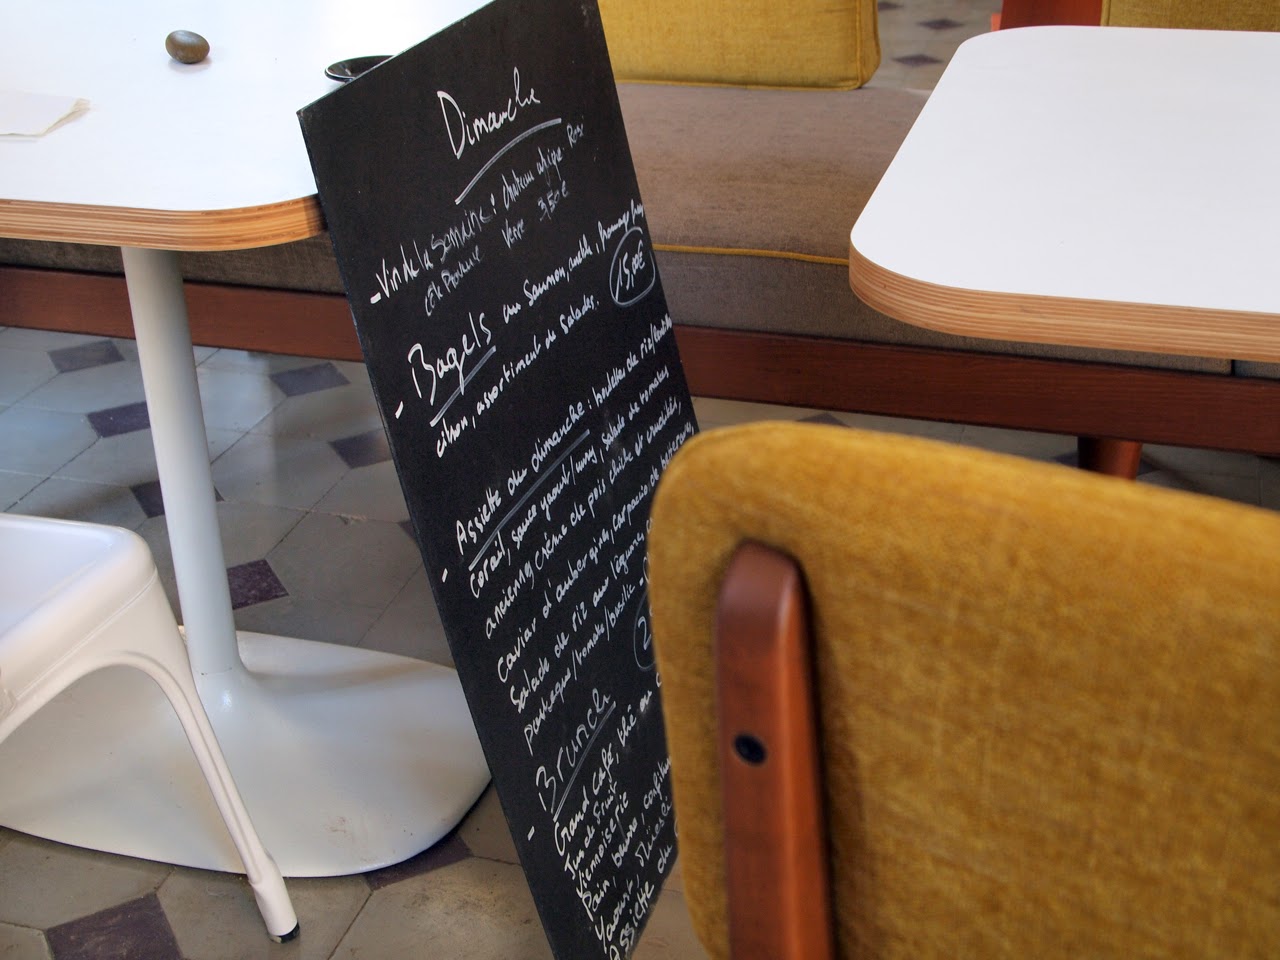 Dimanche
- Vin de la semaine : chateau Rosé
Côte Provence Verre 3,50€
- Bagels au saumon, aneth, fromage frais,
citron, assortiment de salades. 15,00€
- Assiette du dimanche : boulettes de riz/lentilles
corail, sauce yaourt/curry, salade de tomates
anciennes, crème de pois chiche et crudités,
caviar d'aubergine, carpaccio de betterave,
Salade de riz aux légumes,
pastèque/tomate/basilic - 2
- Brunch
Grand café, thé ou
Jus de fruit
Viennoiserie
Pain, beurre, confiture
Yaourt, Müesli
Assiette du